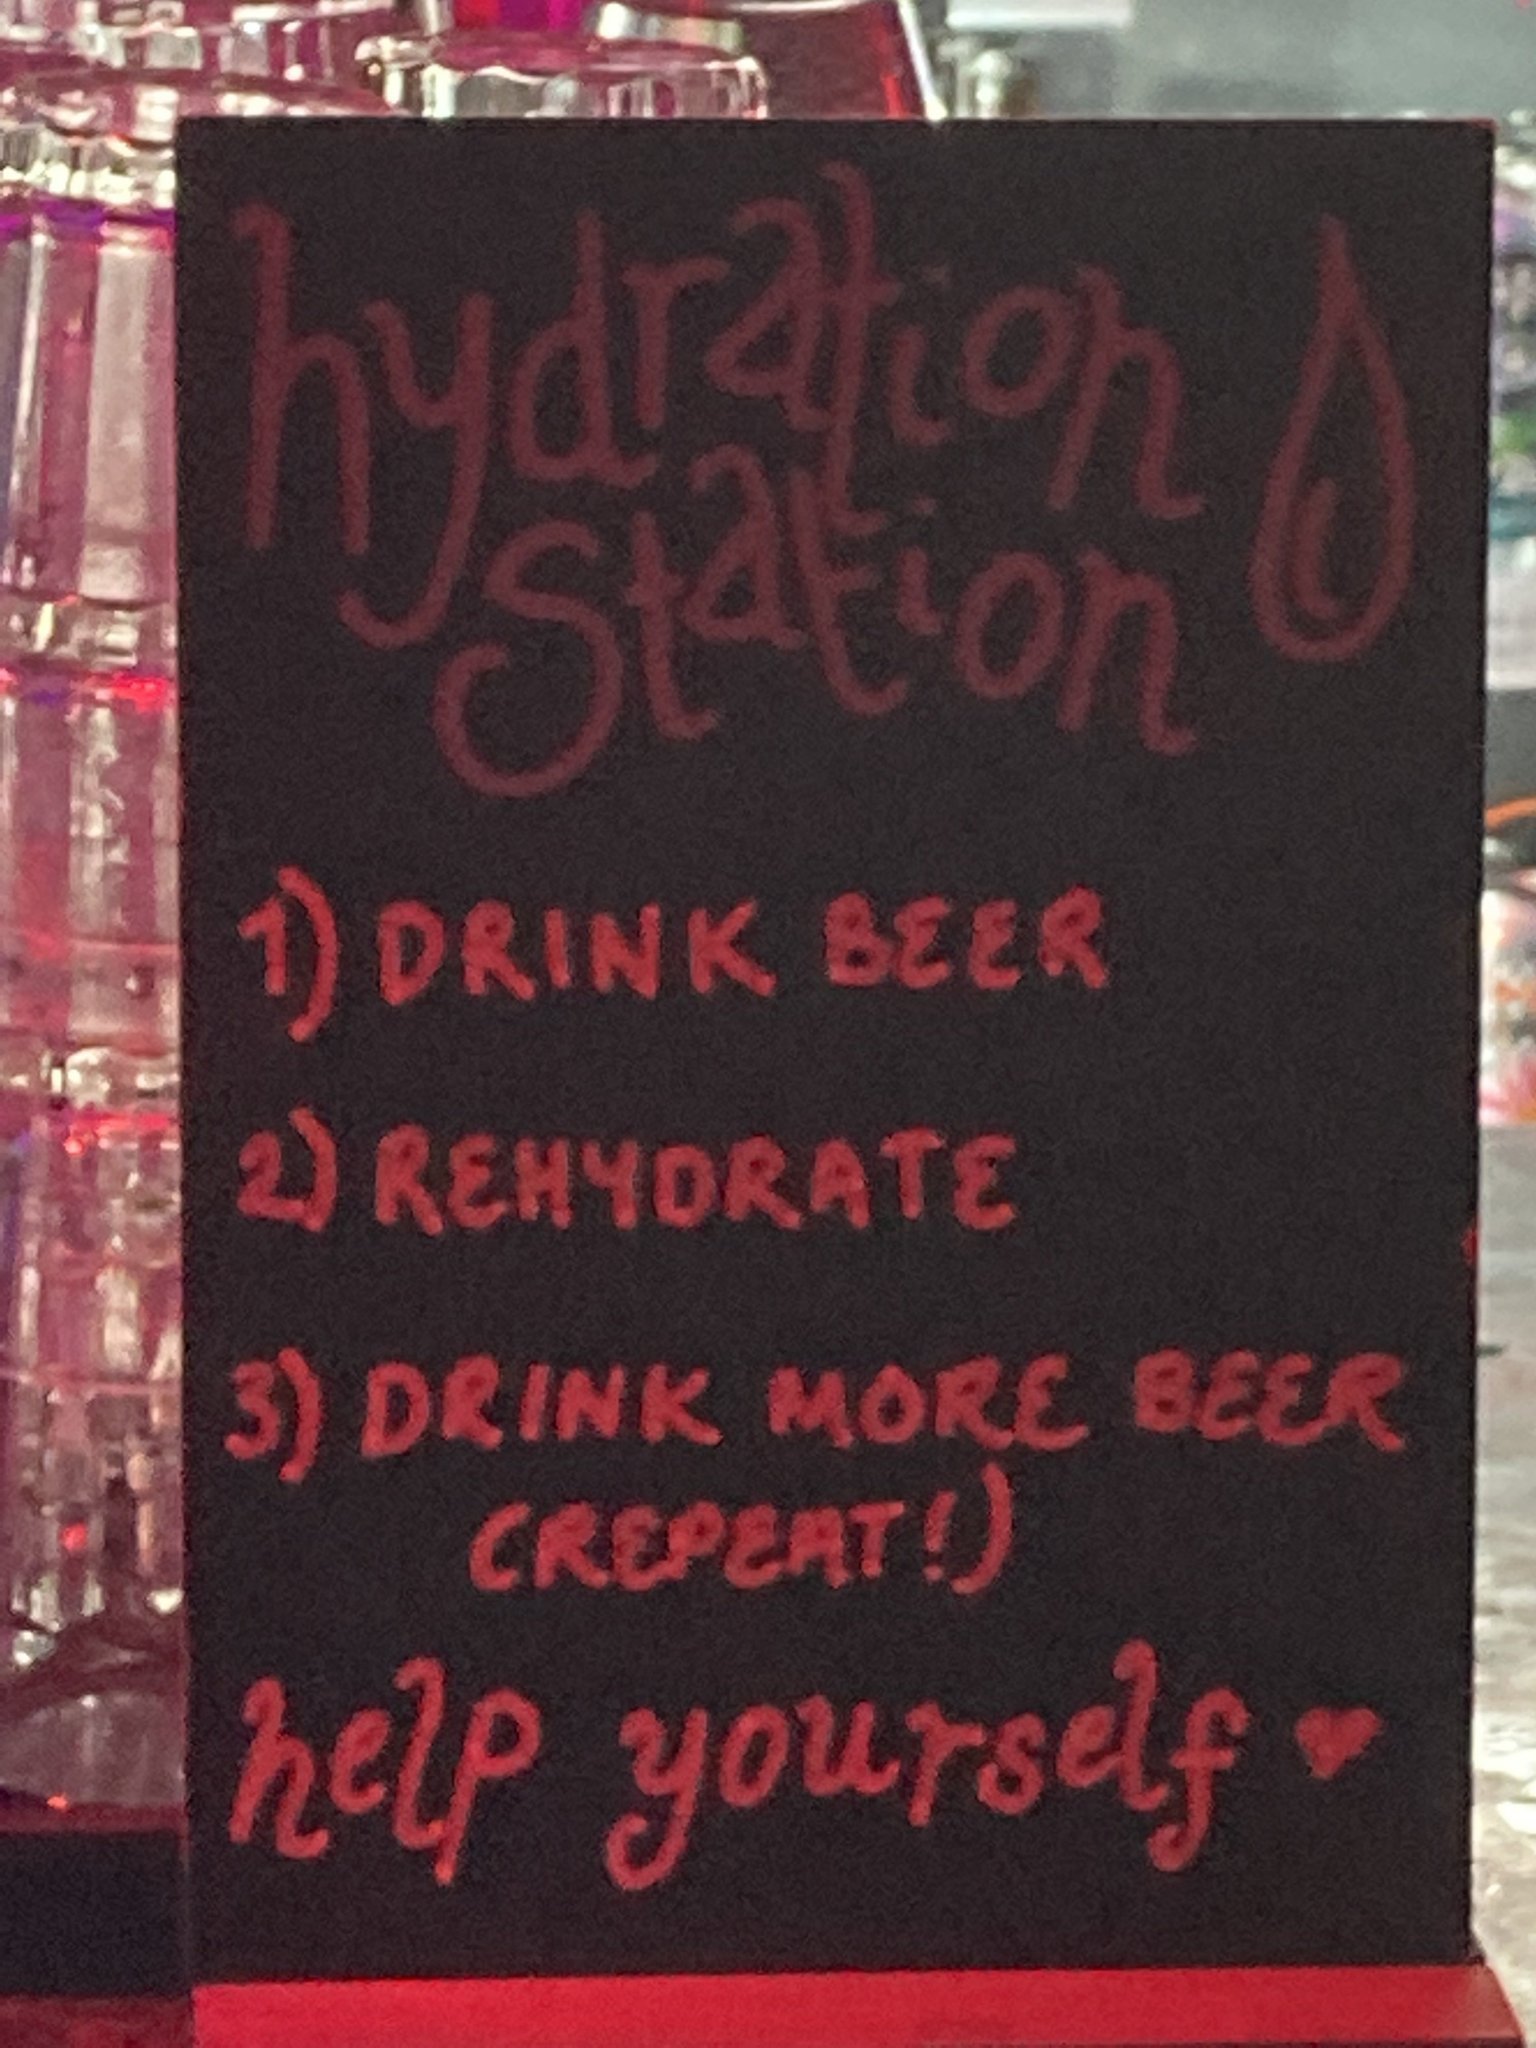 hydration
station
1) DRINK BEER
2) REHYDRATE
3) DRINK MORE BEER
(REPEAT!)
help yourself ♥